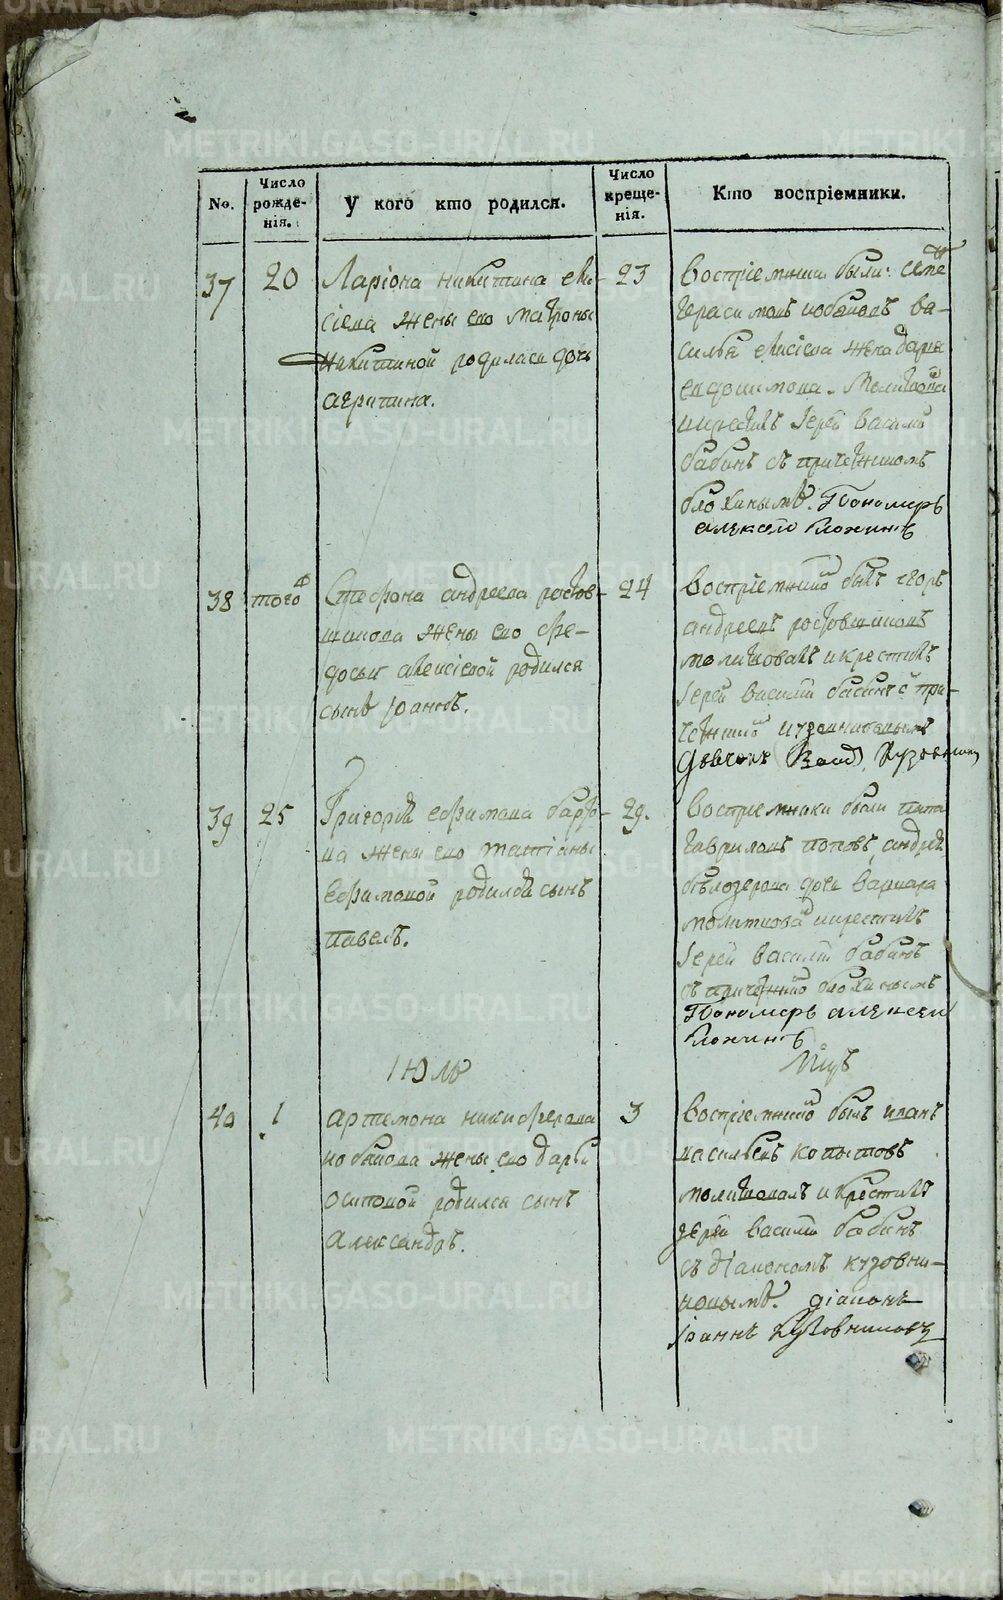 METRIKI.GASO-URAL.RU
No.
Число рожде-нія.
У кого кто родился.
Число креще-нія.
Кто воспріемники.
37
20
Ларіона никитина ели-
сіева жены ево матроны
никитиной родиласи дочь
агрипина.
23
Воспріемники были: семе
герасимовъ кобяковъ ва-
силья елисіева жена дарья
евдокимова. Молитвовал
и крестилъ Іерей Василій
бабинъ съ причетникомъ
блохинымъ. Пономарь
алексей Блохинъ
38
того
Стефана андреева ростов-
щикова жены ево фе-
досьи алексіевой родился
сынъ Іоаннъ.
24
Воспріемнико былъ егоръ
андреевъ ростовщиковъ
молитвовалъ и крестилъ
Іерей Василій бабинъ с при-
четнико кузовниковымъ
39
25
Григорій ефимова
жены ево татіаны
Ефимовой родился сынъ
павелъ.
29.
Воспріемники были
гавриловъ поповъ, андрея
бѣлозерова дочь Варвара
молитвова и крестилъ
Іерей Василій бабинъ
съ причетнико блохинымъ
Пономарь алексей
Блохинъ
ІЮль
Мцъ
40
1
артемона никифорова
кобякова жены ево дарьи
осиповой родился сынъ
александръ.
3
Воспріемнико былъ иванъ
васильевъ копытовъ
молитвовалъ и крестилъ
Іерей Василій бабинъ
съ діакономъ кузовни-
ковымъ. діаконъ
Іоаннъ Кузовниковъ